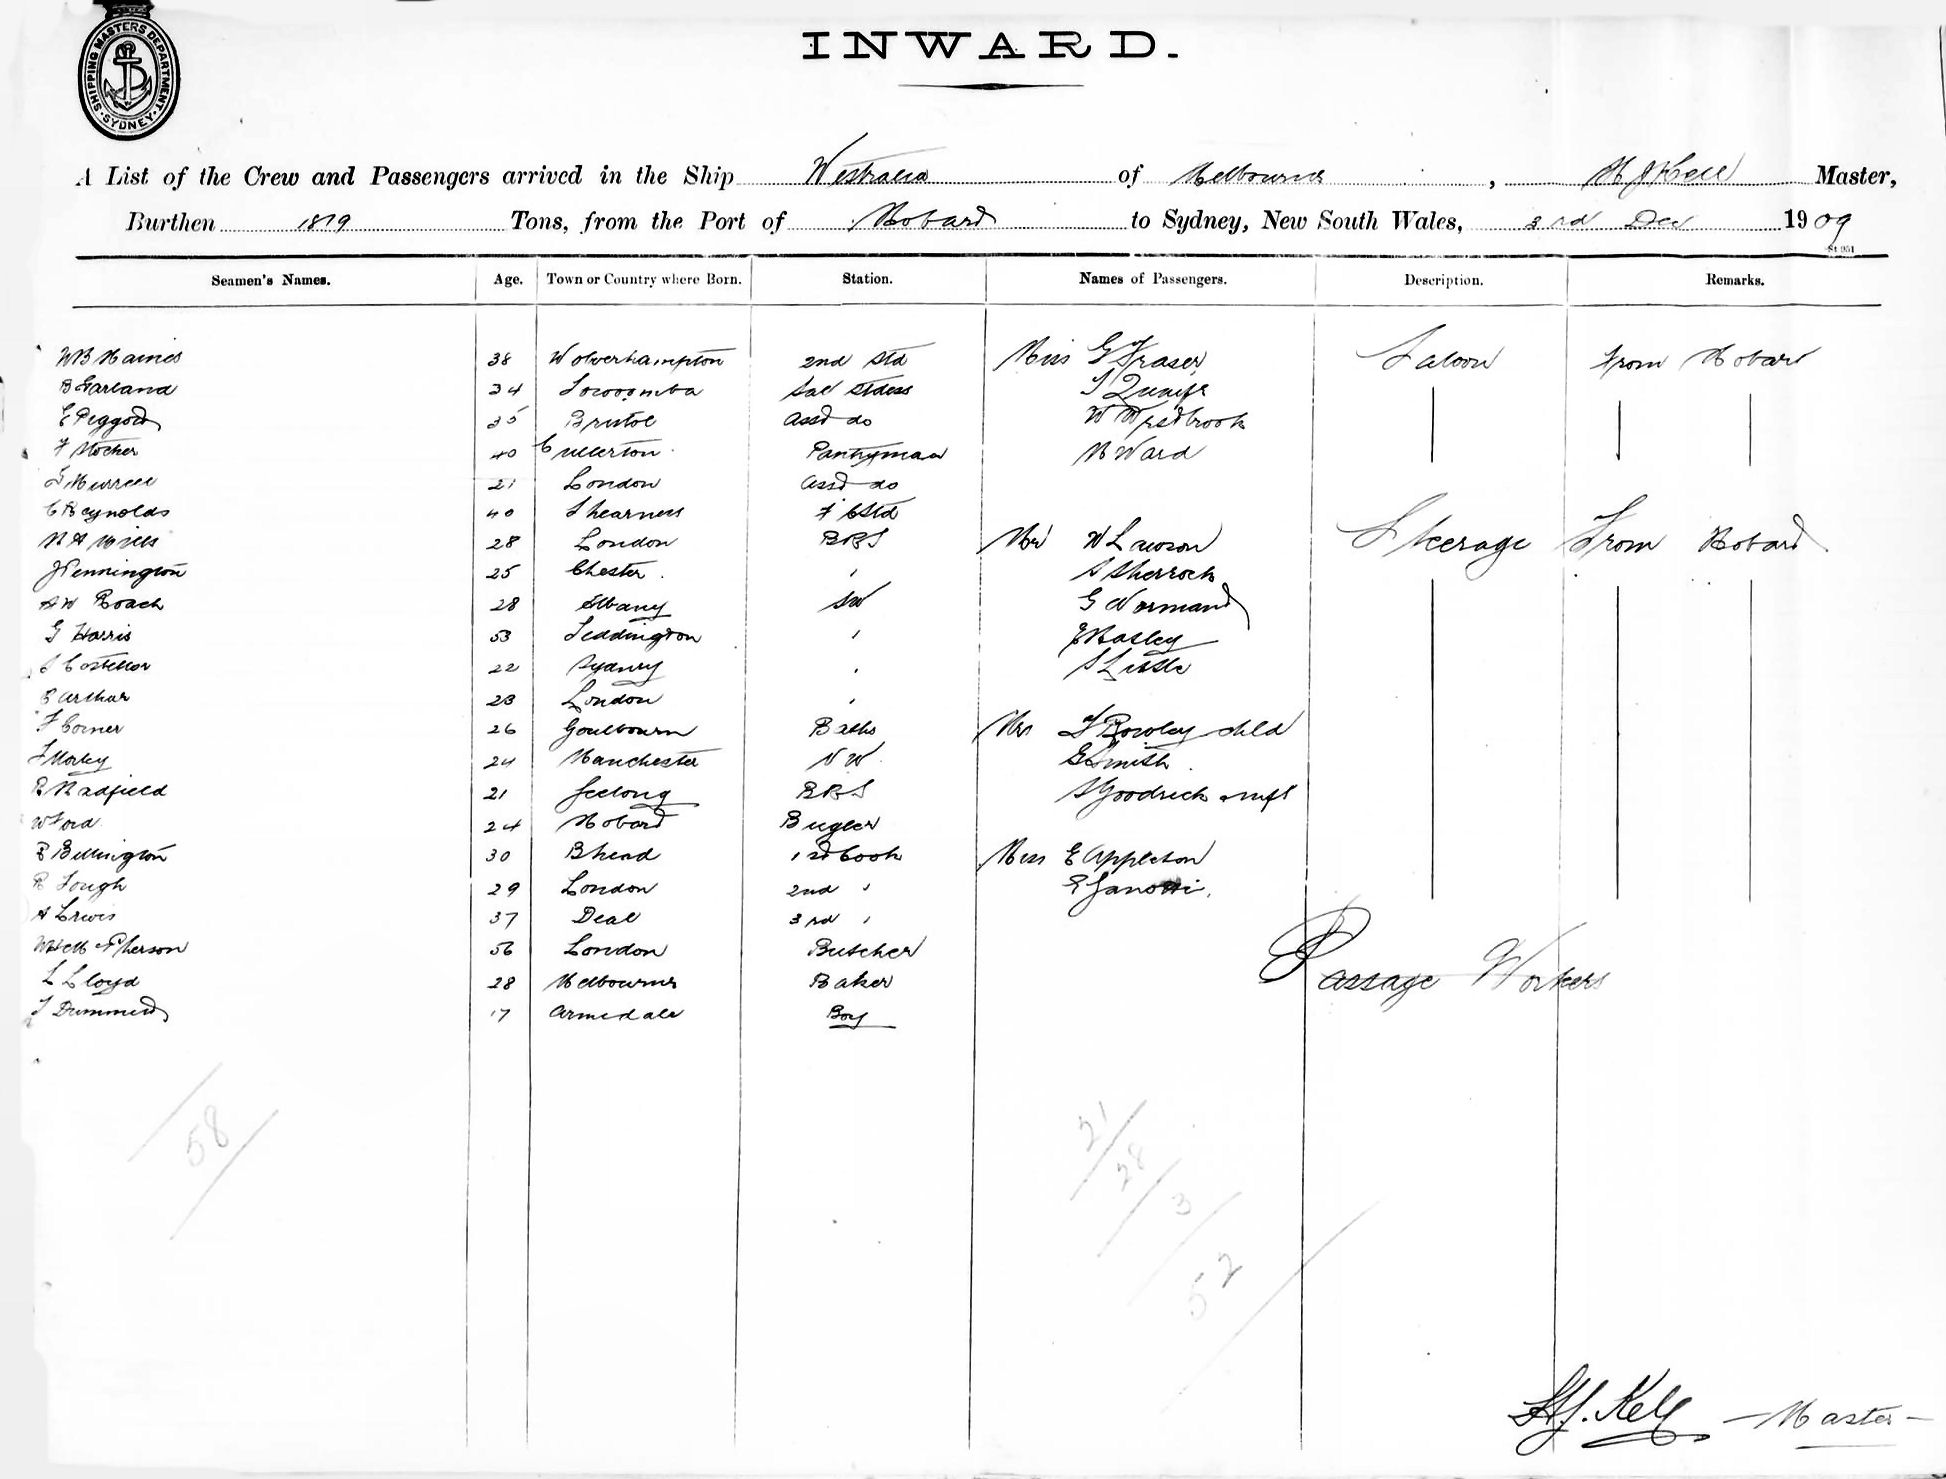 SHIPPING MASTERS DEPARTMENT SYDNEY
INWARD.
A List of the Crew and Passengers arrived in the Ship Westralia of Melbourne, H J Kell Master,
Burthen 1819 Tons, from the Port of Hobart to Sydney, New South Wales, 3rd Dec 1909
St 951
Seamen's Names. Age. Town or Country where Born. Station. Names of Passengers. Description. Remarks.
W B Haines 38 Wolverhampton 2nd Std Miss G Fraser Saloon From Hobart
B Garland 34 Toowoomba Sal Stdess T Quaife
E Peggott 35 Bristol Asst do W Westbrook
F Stocker 40 Cullerton Pantryman H Ward
21 London Asst do
C Reynolds 40 Shearness F C Std
H A Wills 28 London BRS Mr W Lawson Steerage From Hobart
J Pennington 25 Chester " S Sherrock
A W Roach 28 Albany SW G Normand
G Harris 53 Teddington " E Basley
S Costellor 22 Sydney " S Little
E Arthur 23 London "
F Corner 26 Goulbourn Baths Mrs F Rowley chld
T Morley 24 Manchester NW E Smith
R Hadfield 21 Geelong BRS S Goodrick & inft
W Ford 24 Hobart Bugler
E Billington 30 Bhead 1st Cook Miss E Appleton
R Tough 29 London 2nd " E Zanotti
A Lewis 37 Deal 3rd "
McPherson 56 London Butcher
L Lloyd 28 Melbourne Baker Passage Workers
T Drummond 17 Armedale Boy
58
21
28
3
52
H.J. Kell — Master —